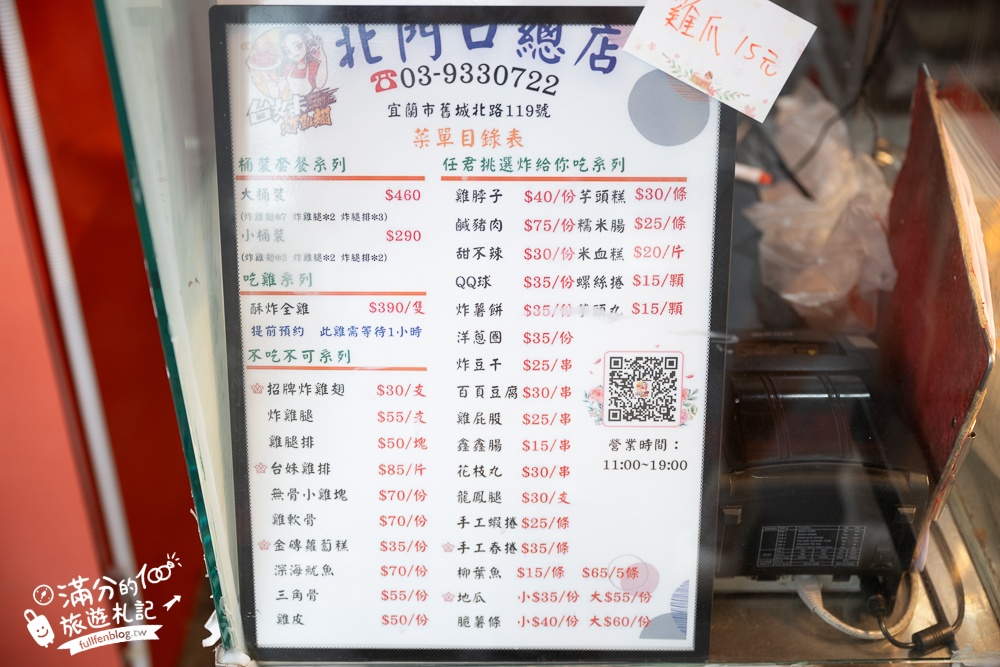 北門口總店
雞爪 15元
☎03-9330722
台妹
炸雞翅
宜蘭市舊城北路119號
菜單目錄表
桶裝套餐系列
大桶裝 $460
(炸雞翅*7 炸雞腿*2 炸腿排*3)
小桶裝 $290
(炸雞翅*3 炸雞腿*2 炸腿排*2)
吃雞系列
酥炸全雞 $390/隻
提前預約 此雞需等待1小時
不吃不可系列
招牌炸雞翅 $30/支
炸雞腿 $55/支
雞腿排 $50/塊
台妹雞排 $85/片
無骨小雞塊 $70/份
雞軟骨 $70/份
金磚蘿蔔糕 $35/份
深海魷魚 $70/份
三角骨 $55/份
雞皮 $50/份
任君挑選炸給你吃系列
雞脖子 $40/份 芋頭糕 $30/條
鹹豬肉 $75/份 糯米腸 $25/條
甜不辣 $30/份 米血糕 $20/片
QQ球 $35/份 螺絲捲 $15/顆
炸薯餅 $35/份 芋頭丸 $15/顆
洋蔥圈 $35/份
炸豆干 $25/串
百頁豆腐 $30/串
雞屁股 $25/串
鑫鑫腸 $15/串
花枝丸 $30/串
龍鳳腿 $30/支
手工蝦捲 $25/條
手工春捲 $35/條
柳葉魚 $15/條 $65/5條
地瓜 小$35/份 大$55/份
脆薯條 小$40/份 大$60/份
營業時間：
11:00~19:00
滿分的100
旅遊札記
fullfenblog.tw